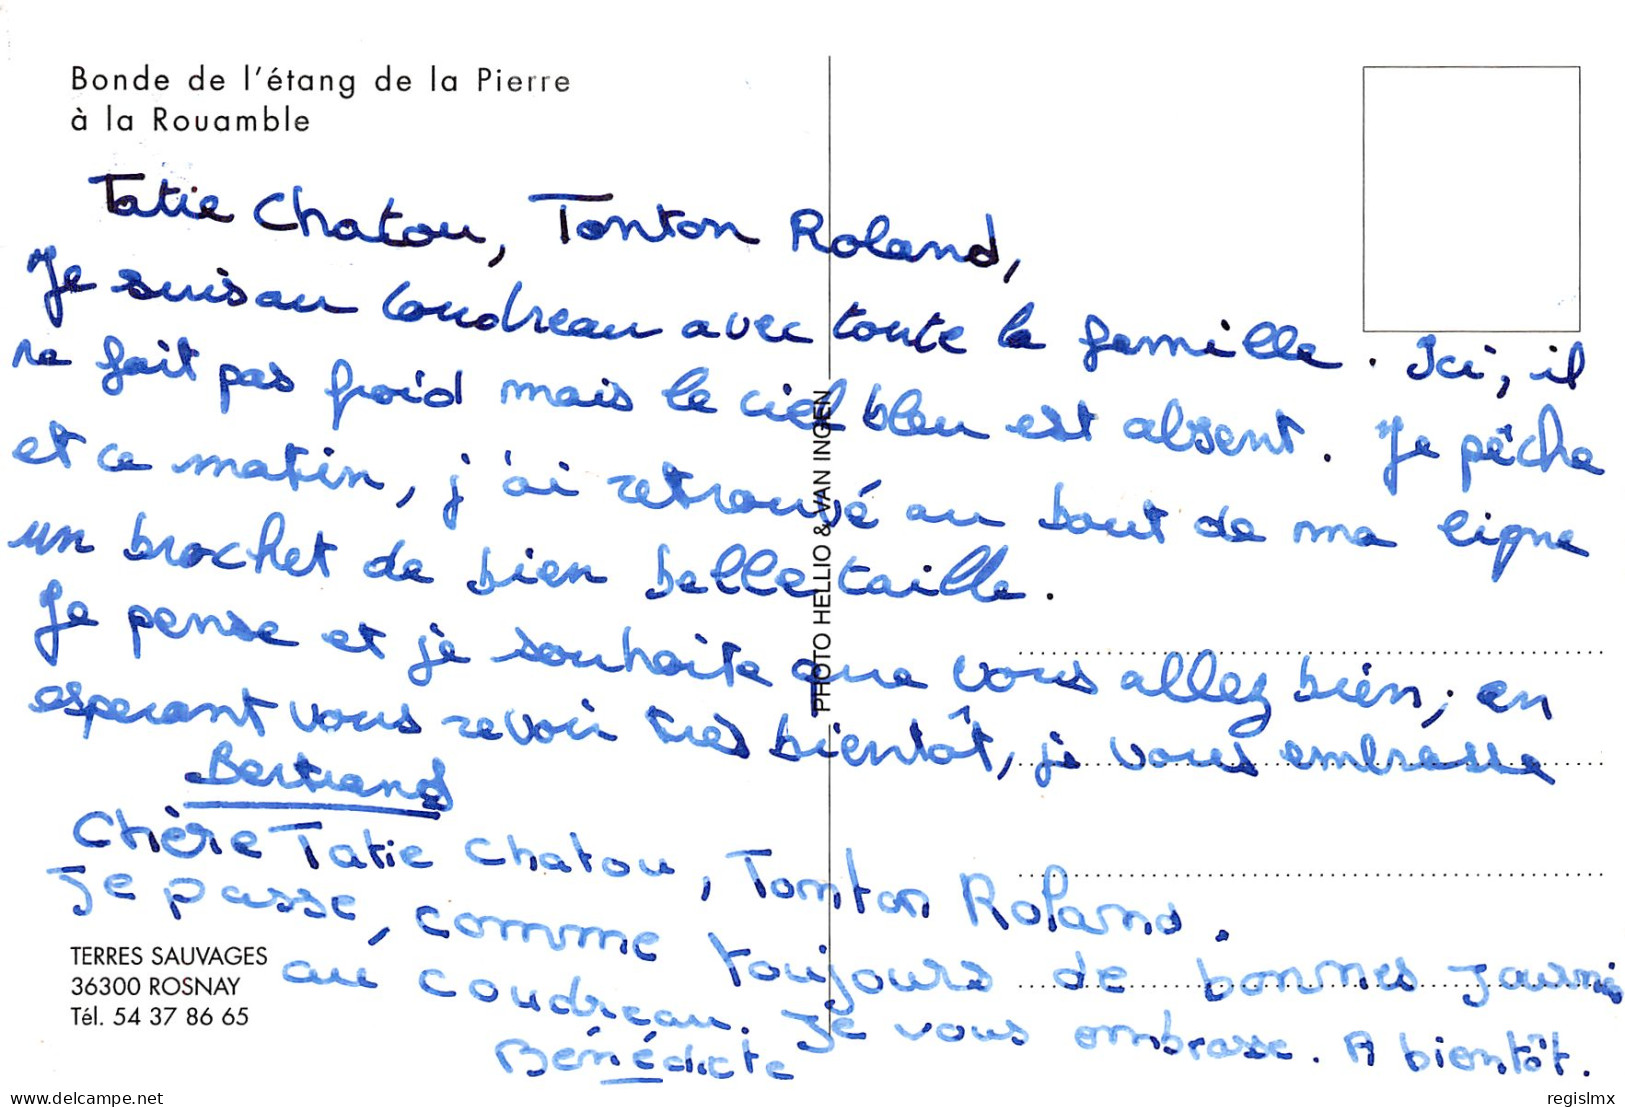 Bonde de l'étang de la Pierre
à la Rouamble
Tatie Chatou, Tonton Roland,
Je suis au Coudreau avec toute la famille. Ici, il
ne fait pas froid mais le ciel bleu est absent. Je pêche
et ce matin, j'ai retrouvé au bout de ma ligne
un brochet de bien belle taille.
Je pense et je souhaite que vous allez bien, en
esperant vous revoir très bientôt, je vous embrasse
Bertrand
Chère Tatie Chatou, Tonton Roland.
Je passe, comme toujours de bonnes journés
au coudreau. Je vous embrasse. A bientôt.
Bénédicte
TERRES SAUVAGES
36300 ROSNAY
Tél. 54 37 86 65
PHOTO HELLIO & VAN INGEN
delcampe.net
regislmx